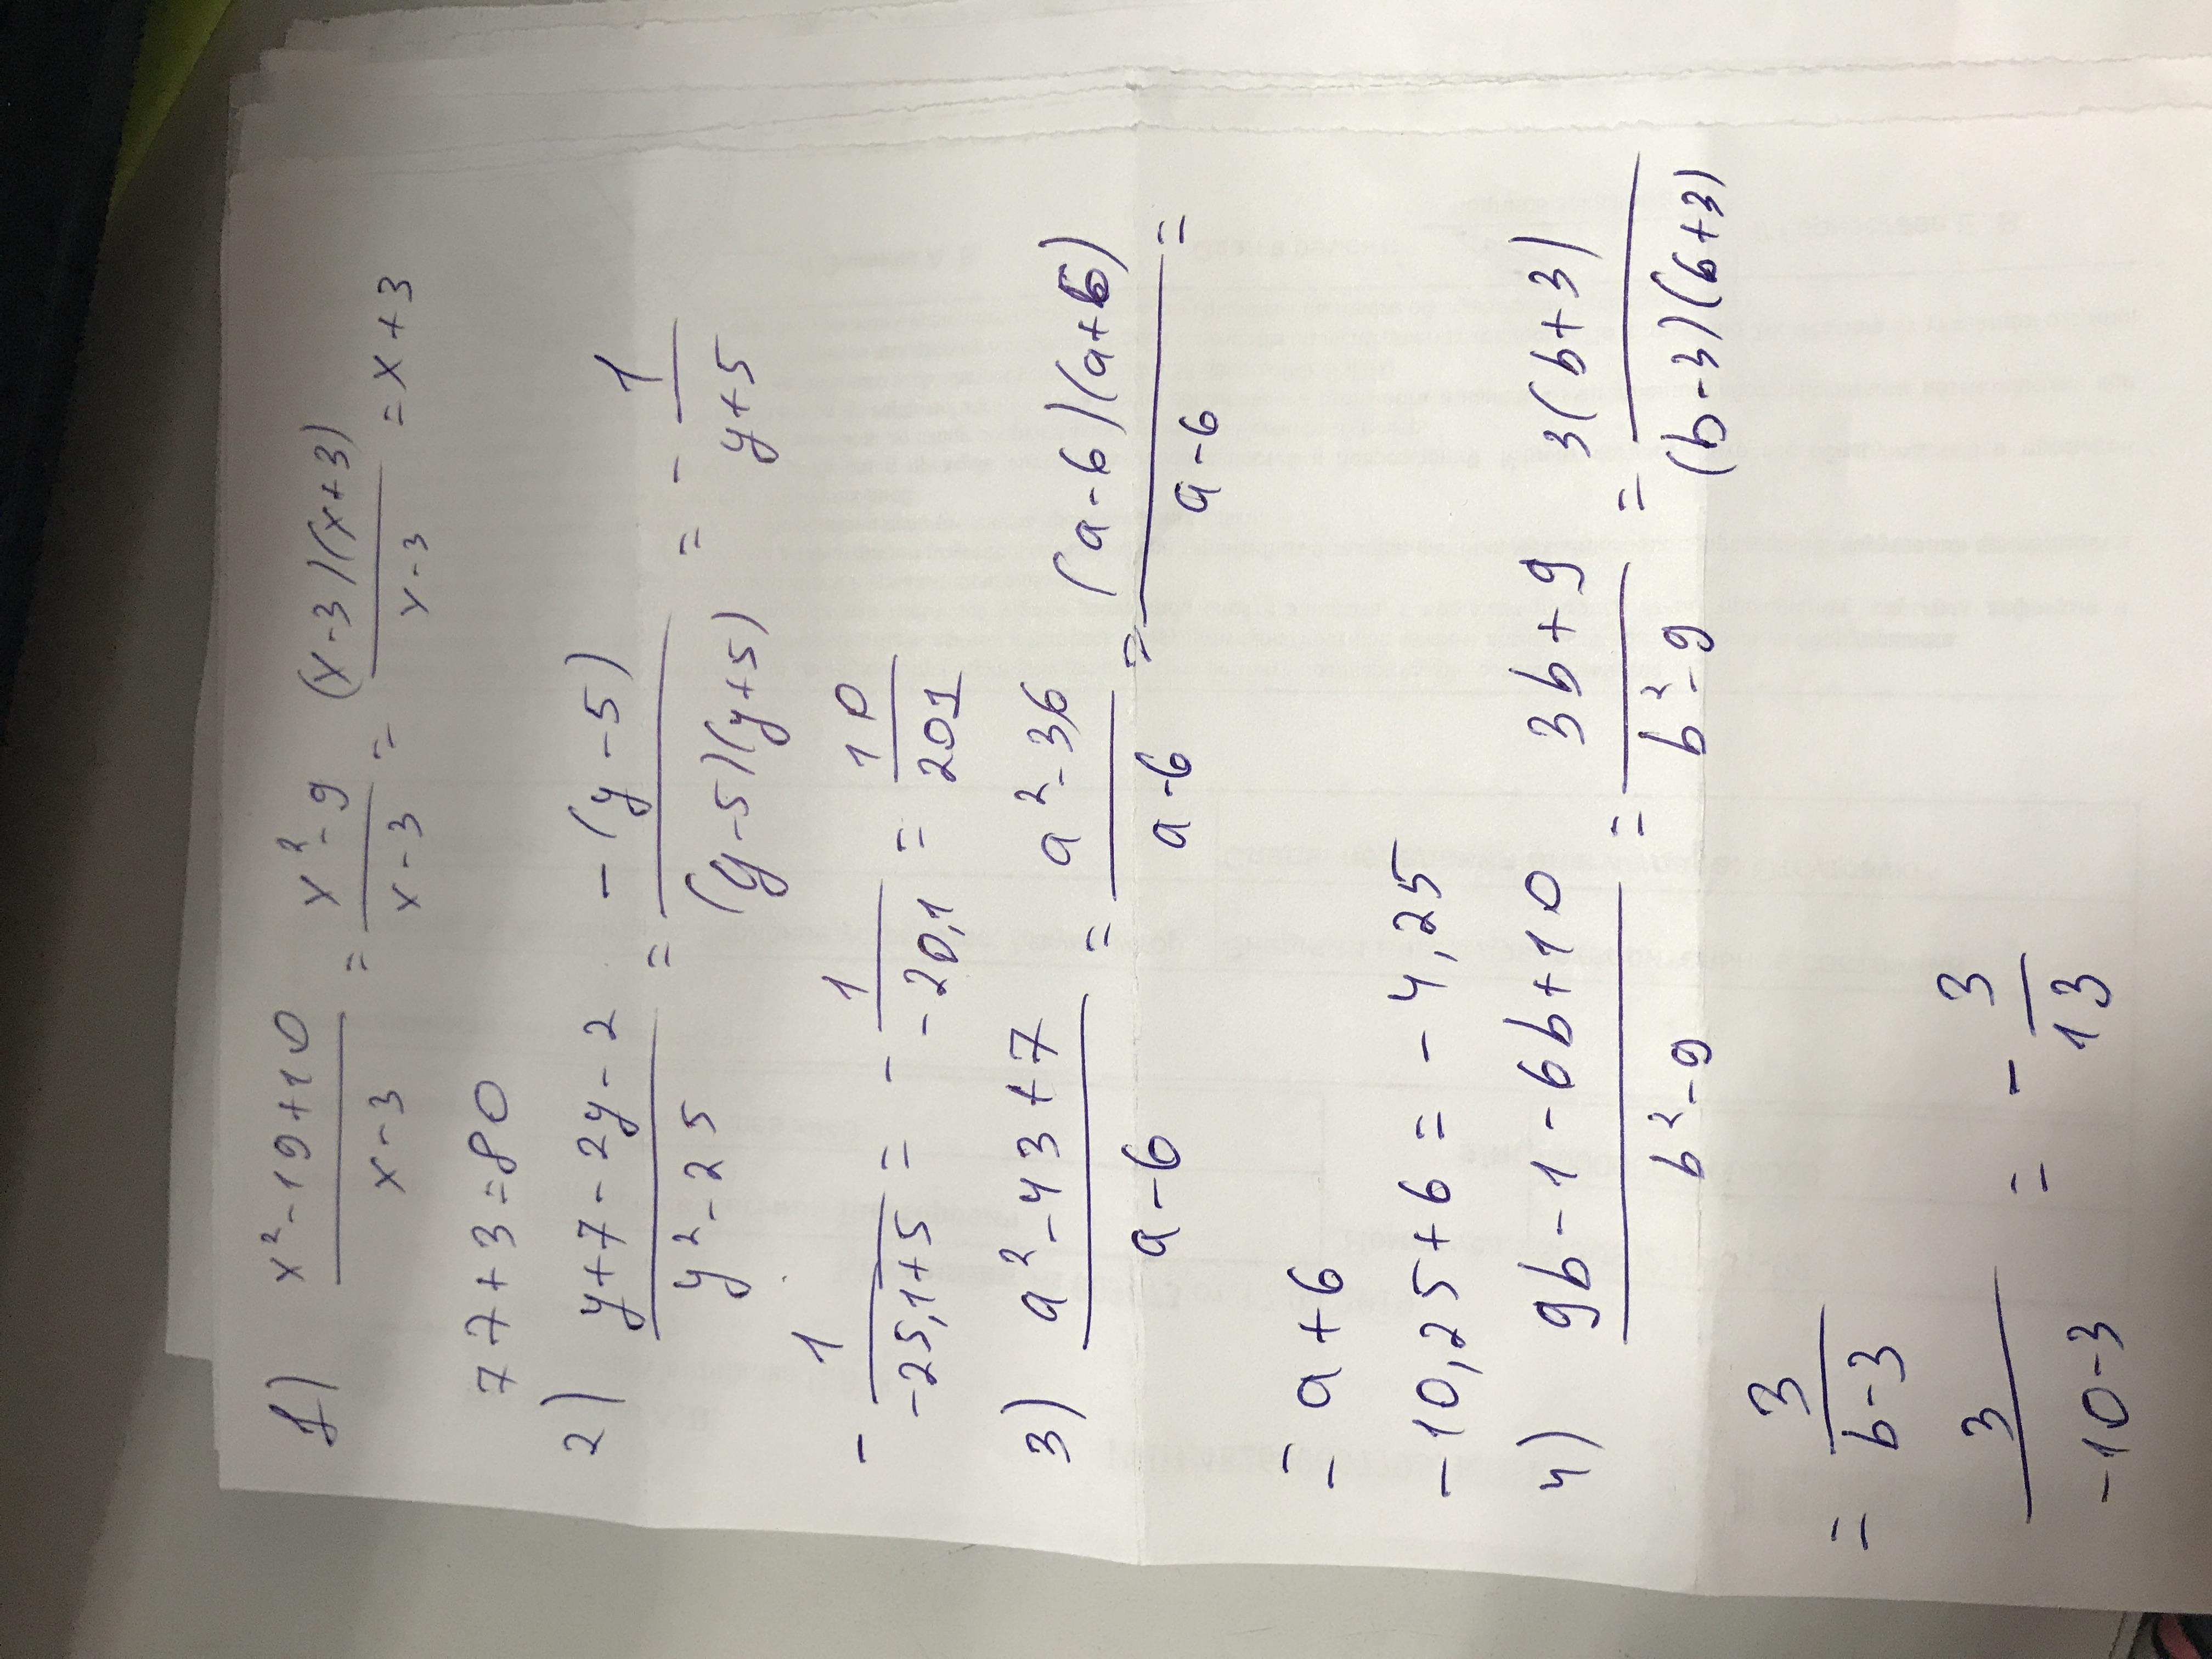 1) (x² - 19 + 10)/(x - 3) = (x² - 9)/(x - 3) = ((x - 3)(x + 3))/(x - 3) = x + 3
77 + 3 = 80
2) (y + 7 - 2y - 2)/(y² - 25) = (-(y - 5))/((y - 5)(y + 5)) = - 1/(y + 5)
- 1/(-25,1 + 5) = - 1/(-20,1) = 10/201
3) (a² - 43 + 7)/(a - 6) = (a² - 36)/(a - 6) = ((a - 6)(a + 6))/(a - 6) =
= a + 6
-10,25 + 6 = - 4,25
4) (9b - 1 - 6b + 10)/(b² - 9) = (3b + 9)/(b² - 9) = (3(b + 3))/((b - 3)(b + 3))
= 3/(b - 3)
3/(-10 - 3) = - 3/13